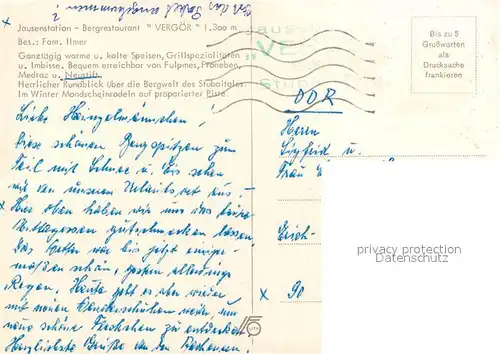 Ist das Paket angekommen?
Jausenstation - Bergrestaurant "VERGÖR" 1.300 m
Bes.: Fam. Ilmer
Ganztägig warme u. kalte Speisen, Grillspezialitäten
u. Imbisse. Bequem erreichbar von Fulpmes, Froneben,
Medraz u. Neustift
Herrlicher Rundblick über die Bergwelt des Stubaitales.
Im Winter Mondscheinrodeln auf präparierter Piste.
Liebe Heinzelmännchen!
Diese schönen Bergspitzen zum
Teil mit Schnee u. Eis sehen
wir von unserem Urlaubsort aus.
Hier oben haben wir uns das
Mittagessen gut schmecken lassen.
Das Wetter war bis jetzt einiger-
maßen schön, gestern allerdings
Regen. Heute geht es aber wieder
mit neuen weiter, um
neue schöne Fleckchen zu entdecken.
Herzlichste Grüße von den
Bis zu 5
Grußworten
als
Drucksache
frankieren
DDR
Herrn
Sigfrid u.
Frau
Eich-
x 90
privacy protection
Datenschutz